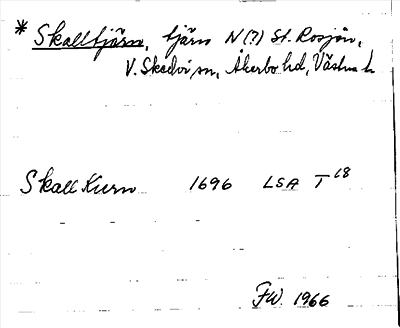 * Skalltjärn, tjärn N (?) St. Rosjön,
V. Skedvi sn, Åkerbo hd, Västm l.
Skall Kiern 1696 LSA T 18
FW. 1966